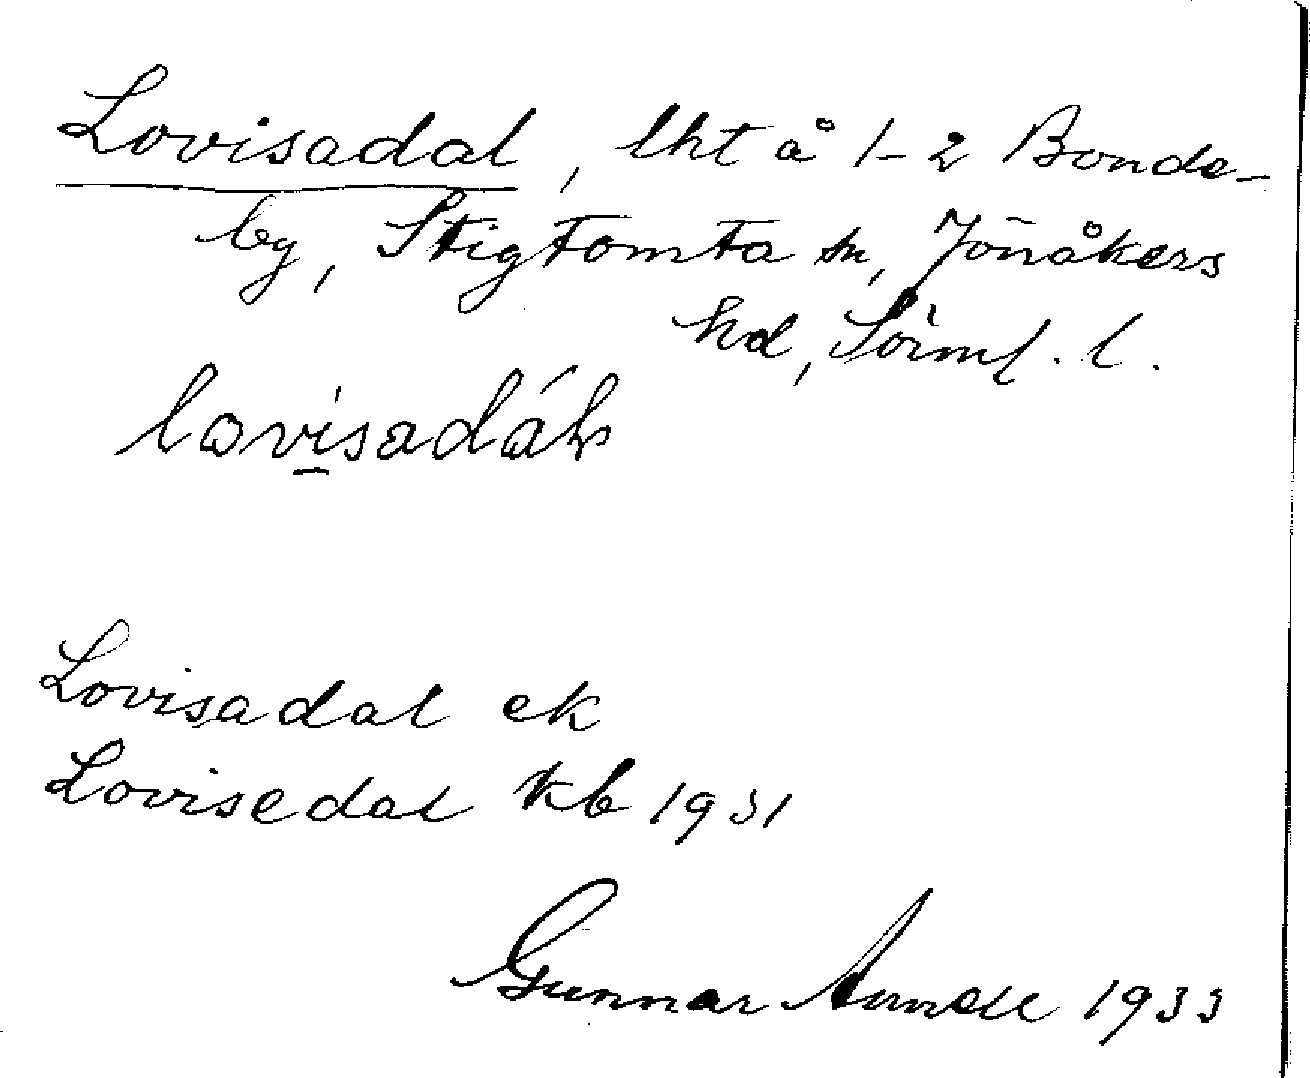 Lovisadal, lht å 1-2 Bonde-
by, Stigtomta sn, Jönåkers
hd, Sörml. l.
Lovisadal ek
Lovisedal kb 1931
Gunnar 1933